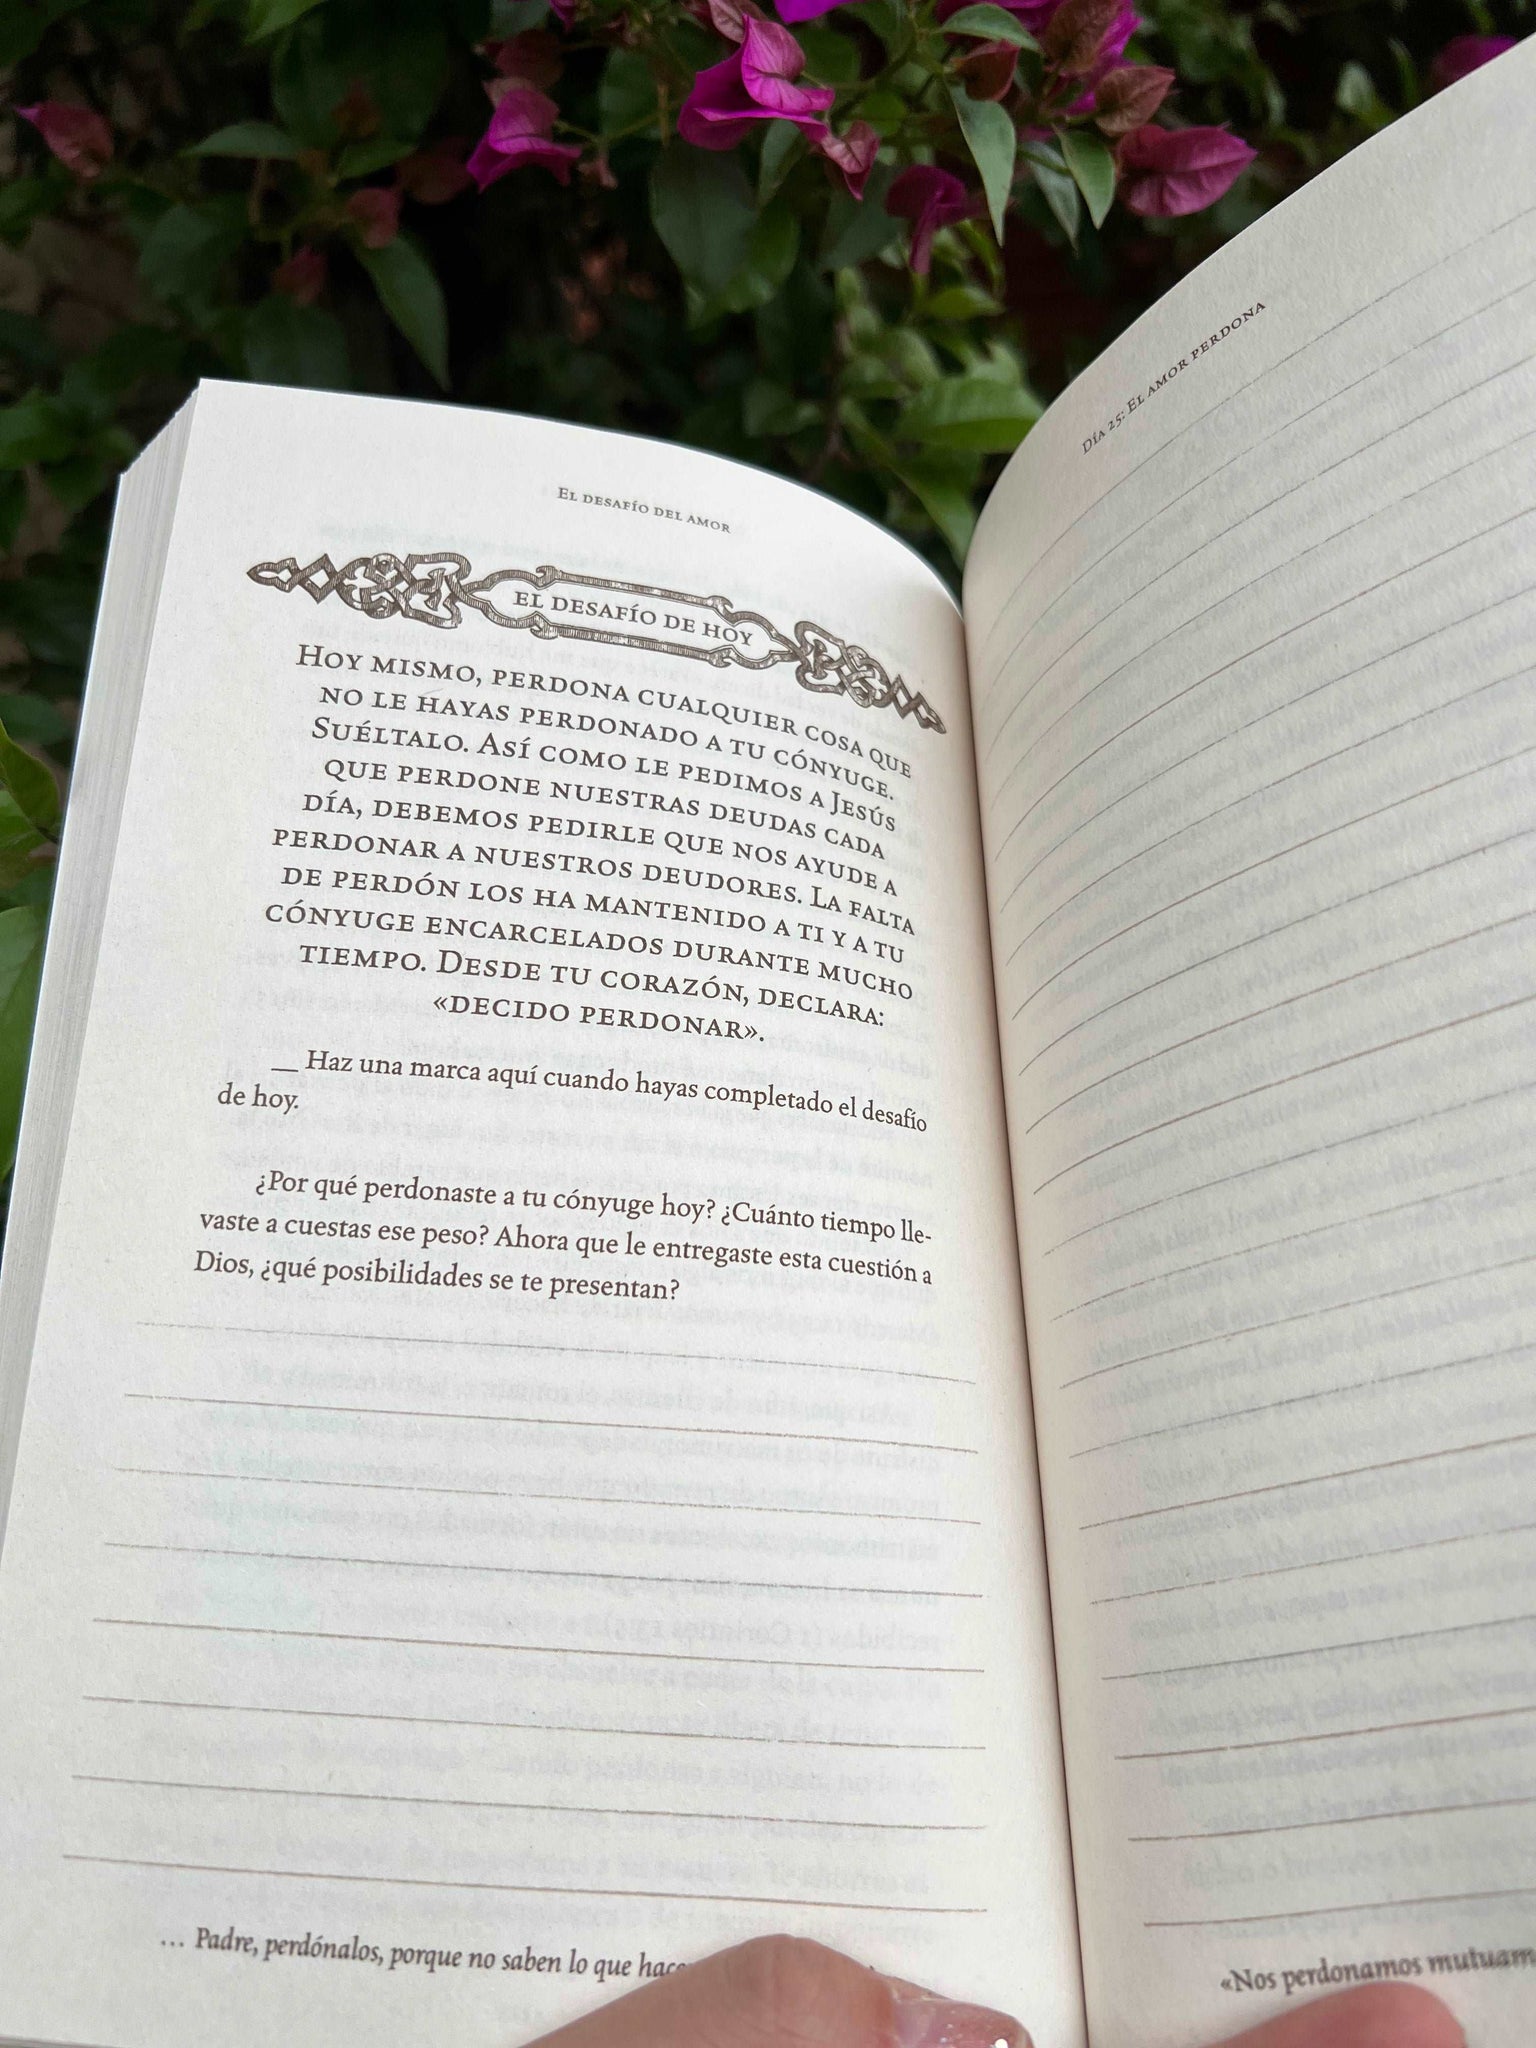 El desafío del amor
El desafío de hoy
Hoy mismo, perdona cualquier cosa que
no le hayas perdonado a tu cónyuge.
Suéltalo. Así como le pedimos a Jesús
que perdone nuestras deudas cada
día, debemos pedirle que nos ayude a
perdonar a nuestros deudores. La falta
de perdón los ha mantenido a ti y a tu
cónyuge encarcelados durante mucho
tiempo. Desde tu corazón, declara:
«decido perdonar».
__ Haz una marca aquí cuando hayas completado el desafío
de hoy.
¿Por qué perdonaste a tu cónyuge hoy? ¿Cuánto tiempo lle-
vaste a cuestas ese peso? Ahora que le entregaste esta cuestión a
Dios, ¿qué posibilidades se te presentan?
… Padre, perdónalos, porque no saben lo que
Día 25: El amor perdona
«Nos perdonamos